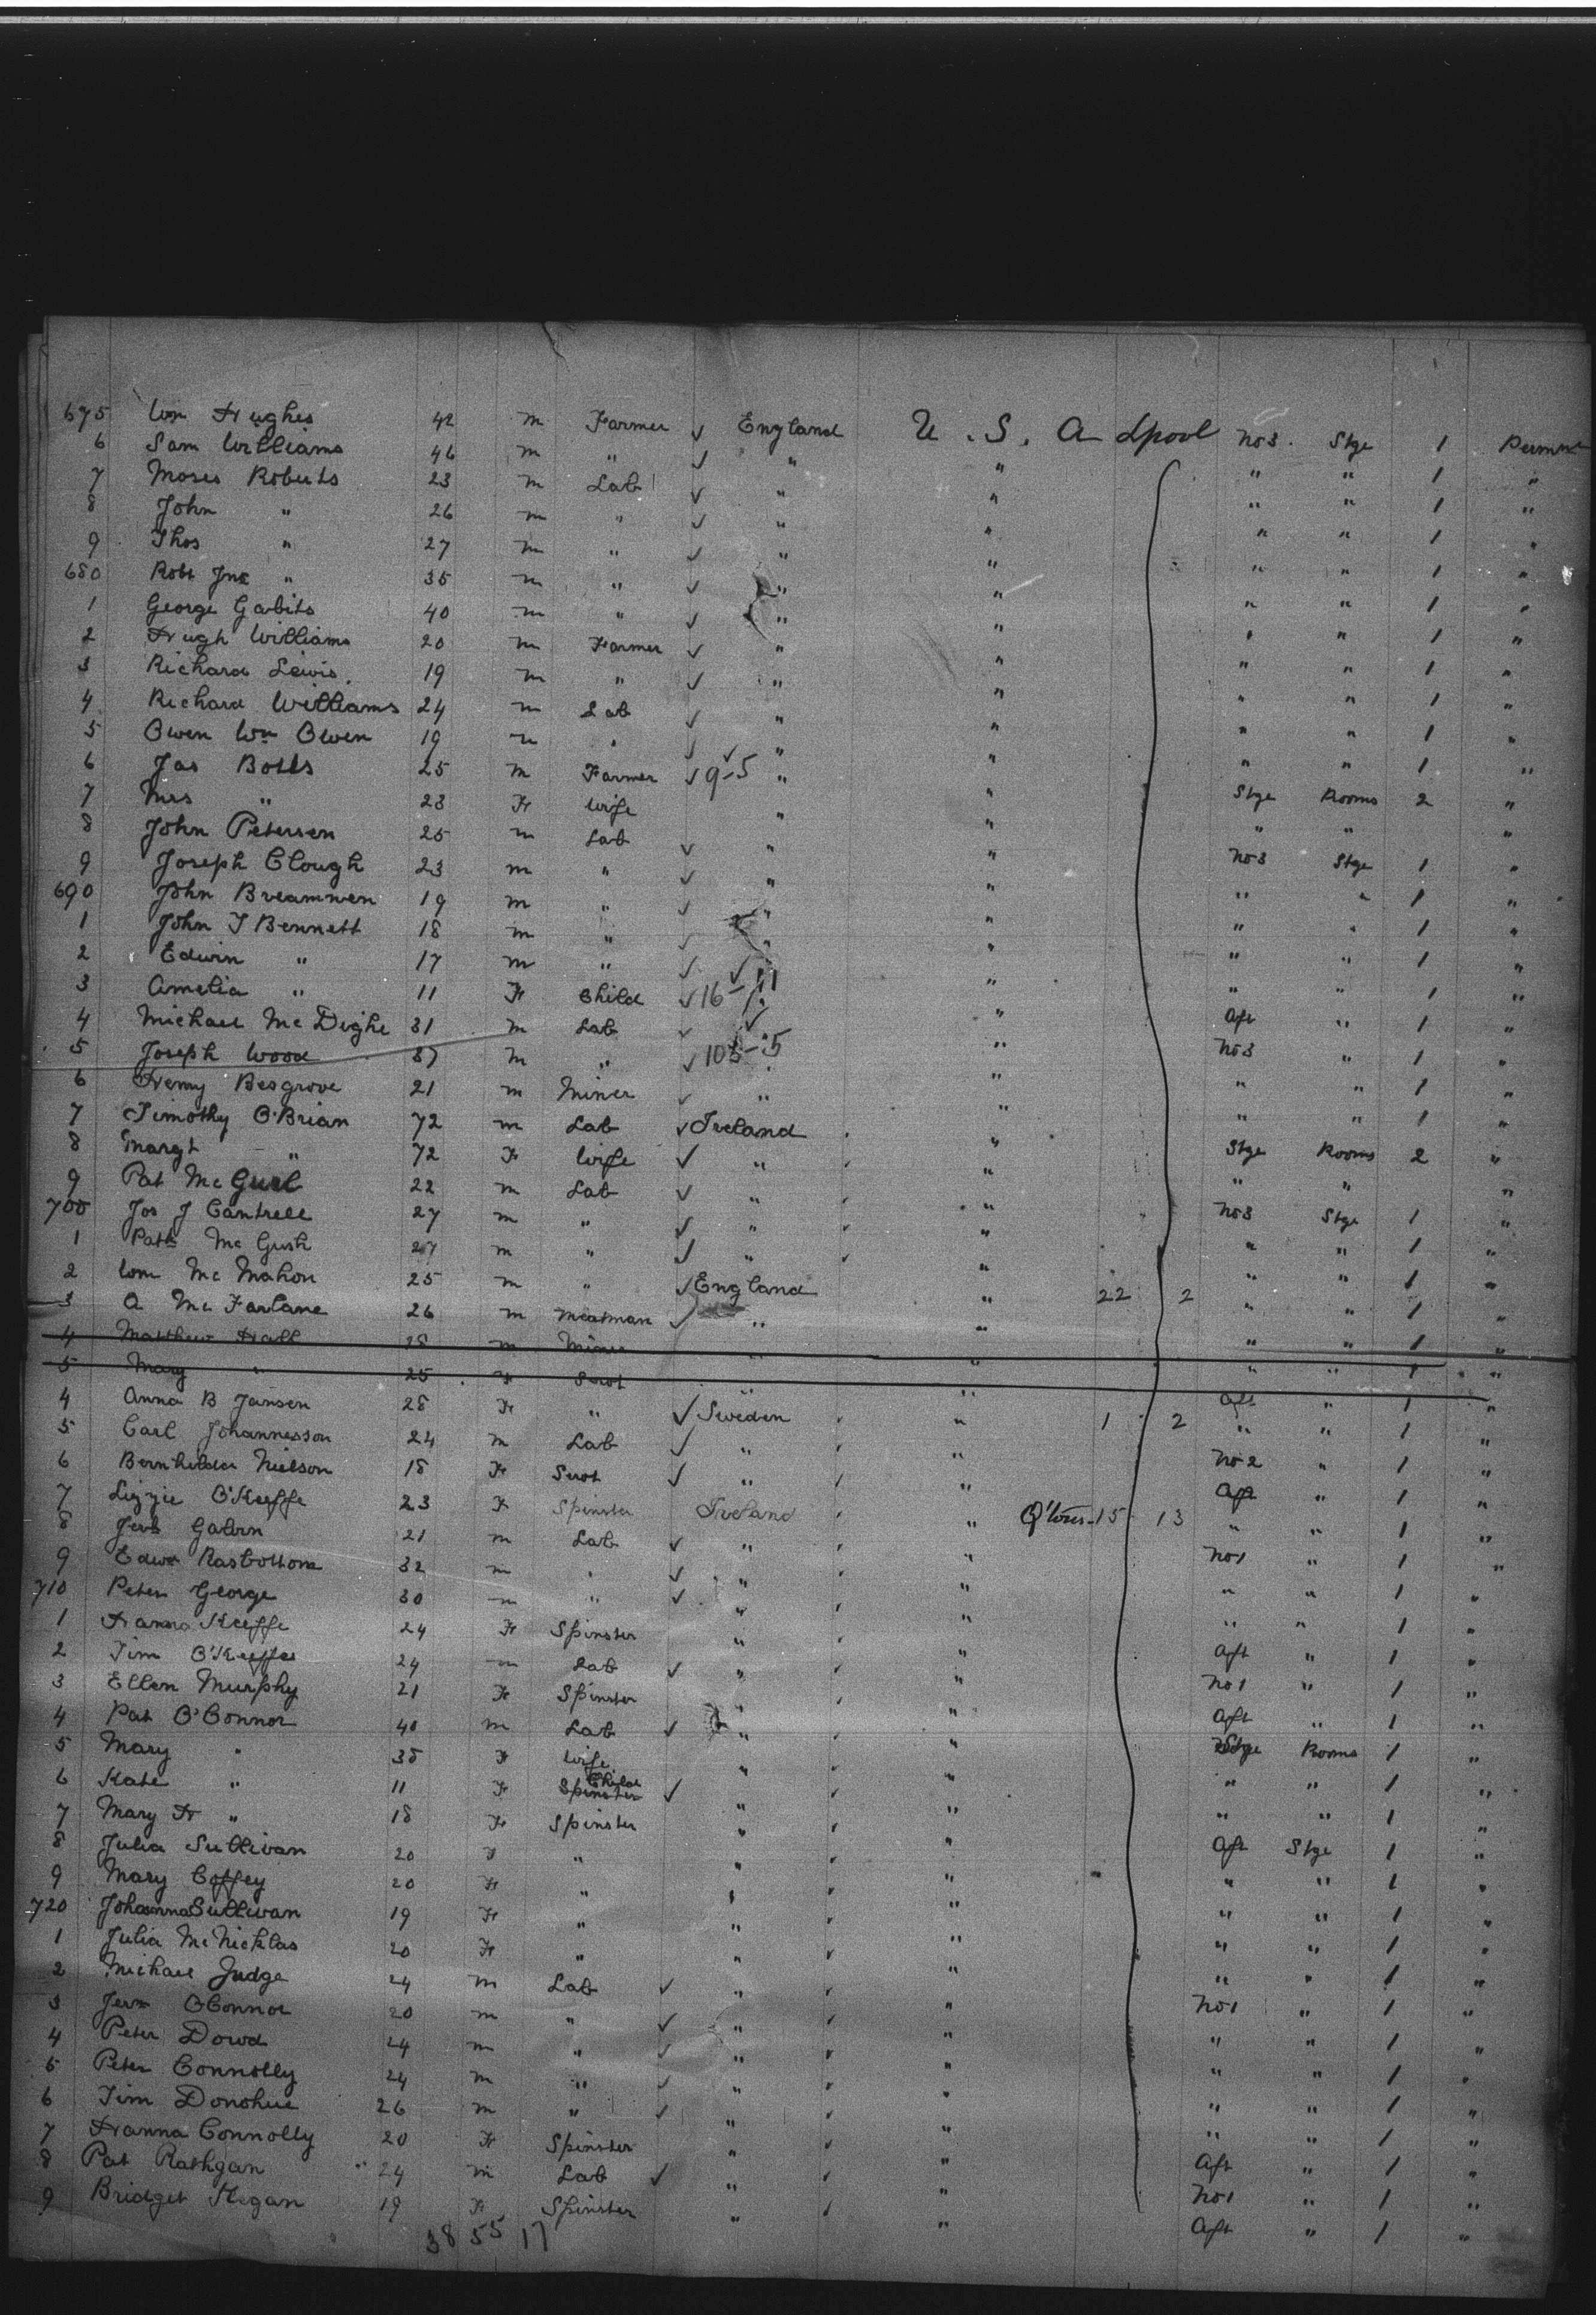 675 Wm Hughes 42 m Farmer ✓ England U. S. A Lpool No 3. Stge 1 Permnt
6 Sam Williams 46 m " ✓ " " " " 1 "
7 Moses Roberts 23 m Lab ✓ " " " " 1 "
8 John " 26 m " ✓ " " " " 1 "
9 Thos " 27 m " ✓ " " " " 1 "
680 Robt Jno " 35 m " ✓ " " " " 1 "
1 George Gabits 40 m " ✓ " " " " 1 "
2 Hugh Williams 20 m Farmer ✓ " " " " 1 "
3 Richard Lewis. 19 m " ✓ " " " " 1 "
4 Richard Williams 24 m Lab ✓ " " " " 1 "
5 Owen Wm Owen 19 m " ✓ " " " " 1 "
6 Jas Botts 25 m Farmer ✓ 9-5 " " Stge Rooms 2 "
7 Mrs " 23 F Wife " " " " "
8 John Petersen 25 m Lab ✓ " " No 3 Stge 1 "
9 Joseph Clough 23 m " ✓ " " " " 1 "
690 John Breamwen 19 m " ✓ " " " " 1 "
1 John T Bennett 18 m " ✓ " " " " 1 "
2 Edwin " 17 m " ✓ " " " " 1 "
3 Amelia " 11 F Child ✓ 16-11 " " Aft " 1 "
4 Michael Mc Dighe 31 m Lab ✓ " " No 3 " 1 "
5 Joseph Wood 37 m " ✓ 103-5 " " " 1 "
6 Henry Besgrove 21 m Miner ✓ " " " " 1 "
7 Timothy O'Brian 72 m Lab ✓ Ireland " Stge Rooms 2 "
8 Margt " 72 F Wife ✓ " " " " "
9 Pat Mc Gurl 22 m Lab ✓ " " No 3 Stge 1 "
700 Jos J Cantrell 27 m " ✓ " " " " 1 "
1 Patk Mc Gush 27 m " ✓ " " " " 1 "
2 Wm Mc Mahon 25 m " ✓ England " 22 2 " " 1 "
3 A Mc Farlane 26 m Meatman ✓ " " " " 1 "
4 Matthew Hall 28 m Miner " " " " 1 "
5 Mary " 25 F Servt " " Aft " 1 "
4 Anna B Jansen 28 F " ✓ Sweden " 1 2 " " 1 "
5 Carl Johannesson 24 m Lab ✓ " " No 2 " 1 "
6 Bernhilda Nielson 18 F Servt ✓ " " Aft " 1 "
7 Lizzie O'Keeffe 23 F Spinster Ireland " Q'town 15 13 " " 1 "
8 Galvin 21 m Lab ✓ " " No 1 " 1 "
9 Edwd Rasbottom 32 m " ✓ " " " " 1 "
710 Peter George 30 m " ✓ " " " " 1 "
1 Hanna Keeffe 24 F Spinster " " Aft " 1 "
2 Tim O'Keeffe 24 m Lab ✓ " " No 1 " 1 "
3 Ellen Murphy 21 F Spinster " " Aft " 1 "
4 Pat O'Connor 40 m Lab ✓ " " Stge Rooms 1 "
5 Mary " 38 F Wife " " " " 1 "
6 Kate " 11 F Spinster Child ✓ " " " " 1 "
7 Mary H " 18 F Spinster " " Aft Stge 1 "
8 Julia Sullivan 20 F " " " " " 1 "
9 Mary Coffey 20 F " " " " " 1 "
720 Johanna Sullivan 19 F " " " " " 1 "
1 Julia McNicklas 20 F " " " " " 1 "
2 Michael Judge 24 m Lab ✓ " " No 1 " 1 "
3 O'Connor 20 m " ✓ " " " " 1 "
4 Peter Dowd 24 m " ✓ " " " " 1 "
5 Peter Connolly 24 m " ✓ " " " " 1 "
6 Tim Donohue 26 m " ✓ " " " " 1 "
7 Hanna Connolly 20 F Spinster " " Aft " 1 "
8 Pat Rathgan 24 m Lab ✓ " " No 1 " 1 "
9 Bridget Hegan 19 F Spinster " " Aft " 1 "
38 55 17